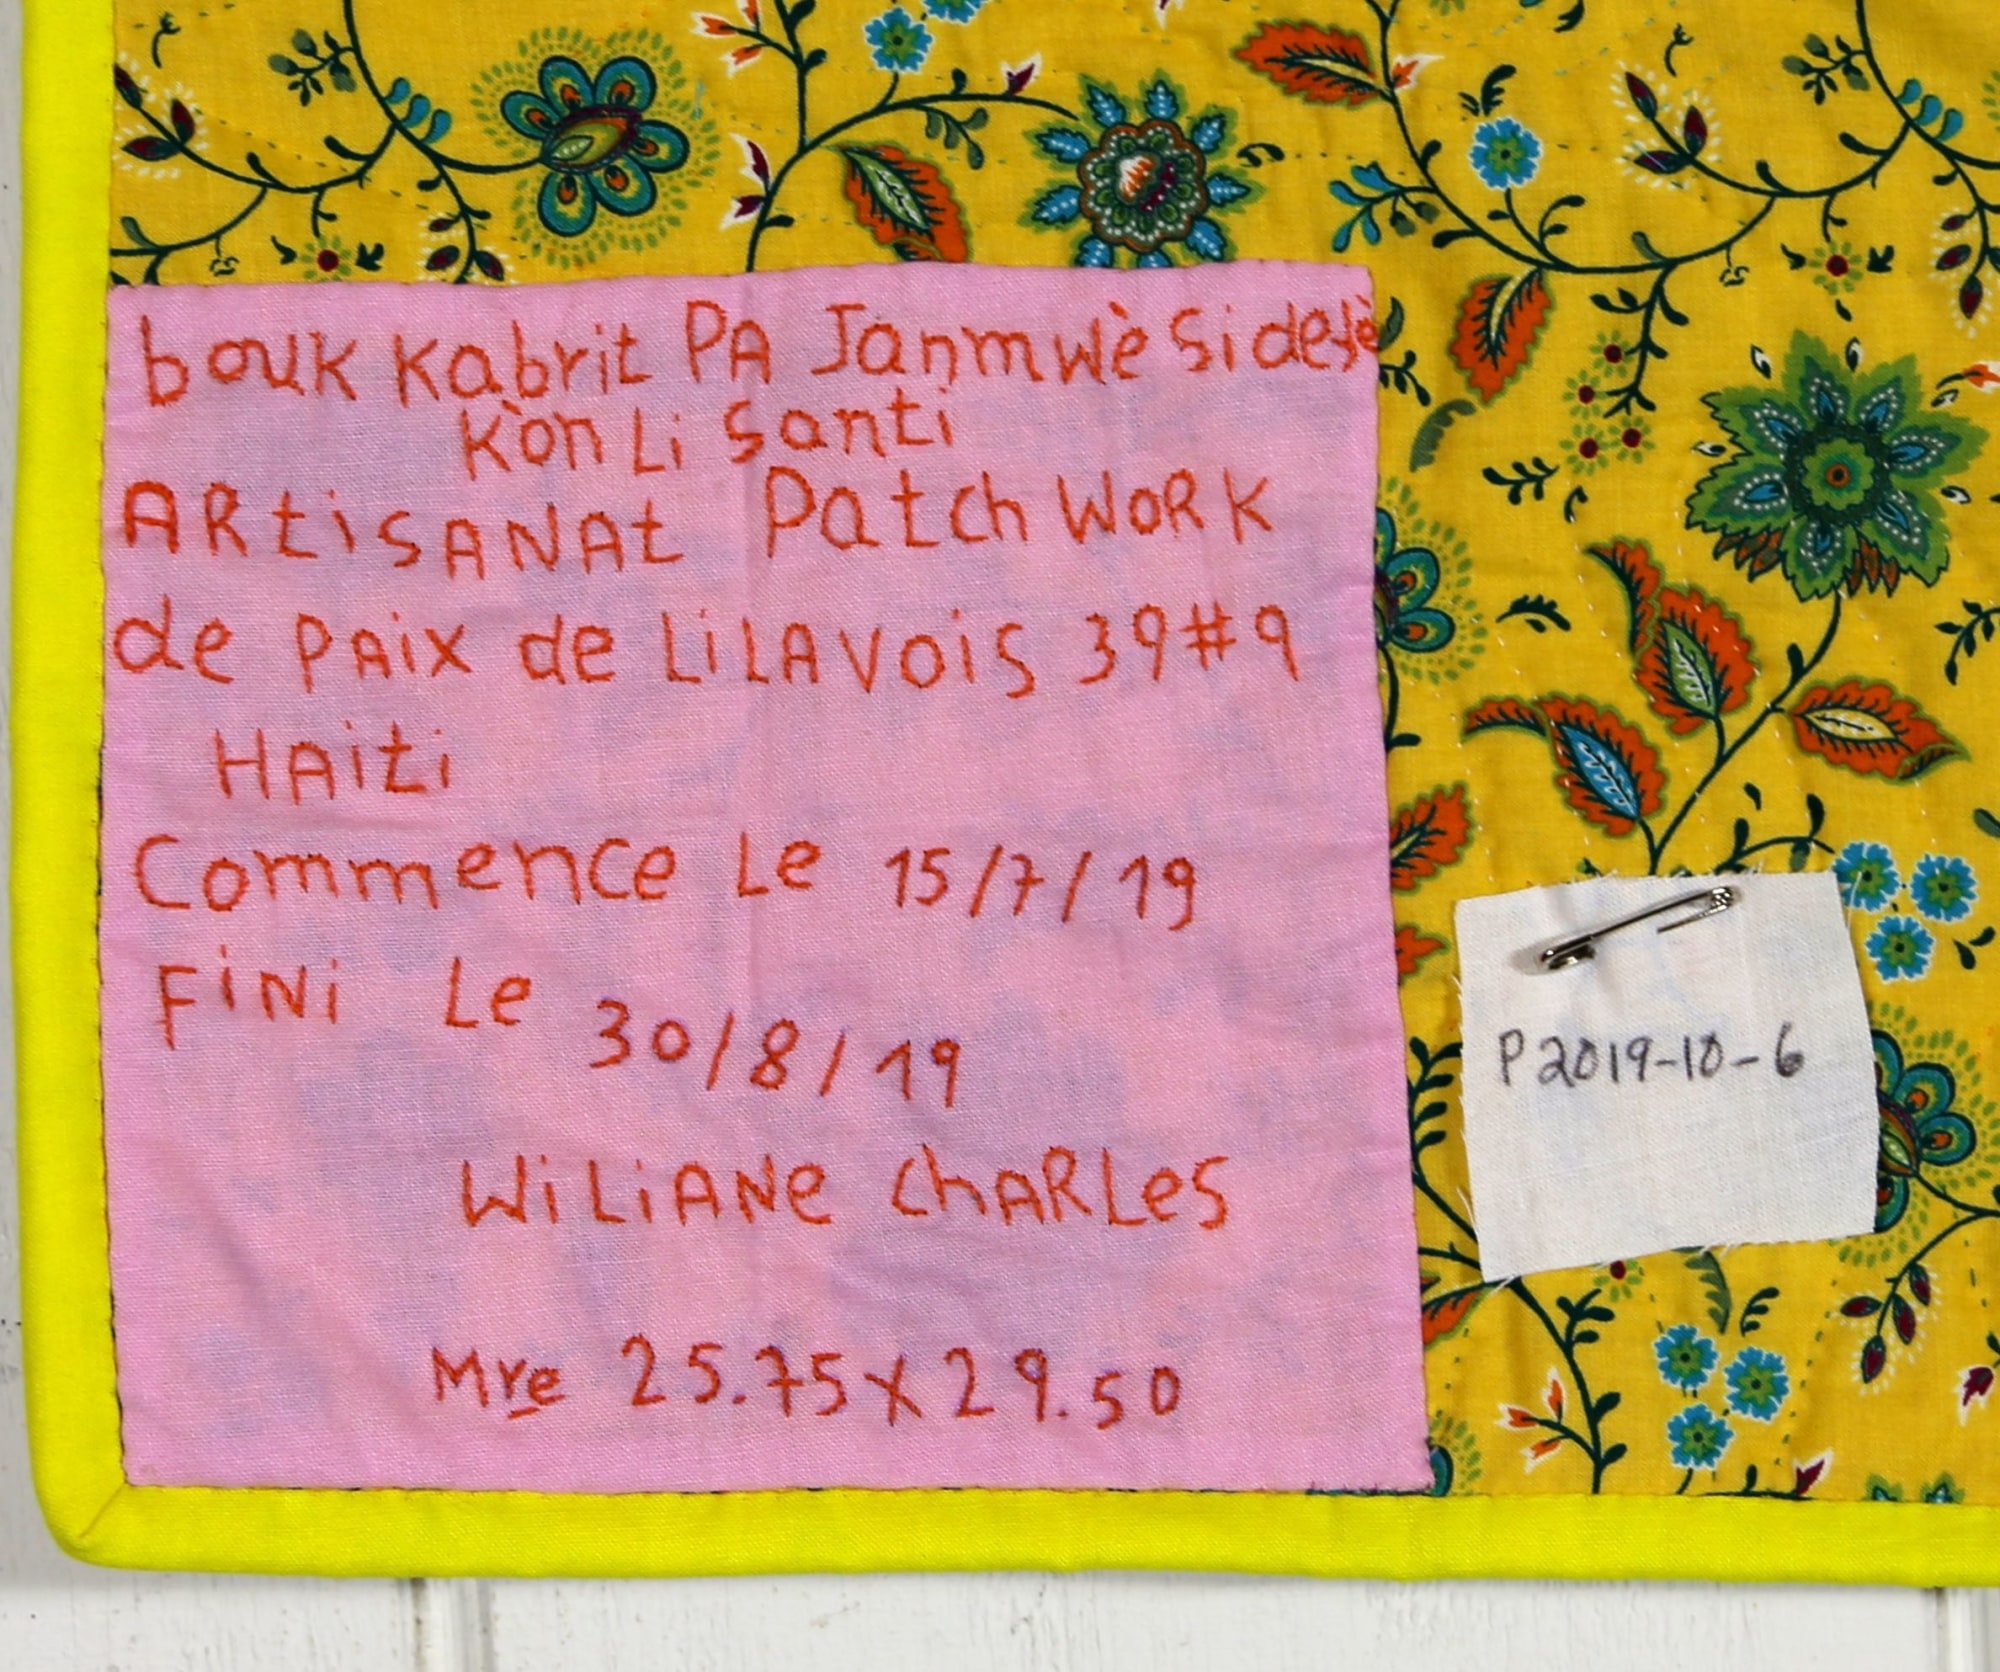 bouk kabrit PA Janm wè si dèyè
kòn li santi
ARtiSANAt Patch WoRK
de PAix de LiLAVOiS 39#9
HAiti
Commence Le 15/7/19
FiNi Le 30/8/19
WiLiANe ChARLeS
Mre 25.75x29.50
P2019-10-6